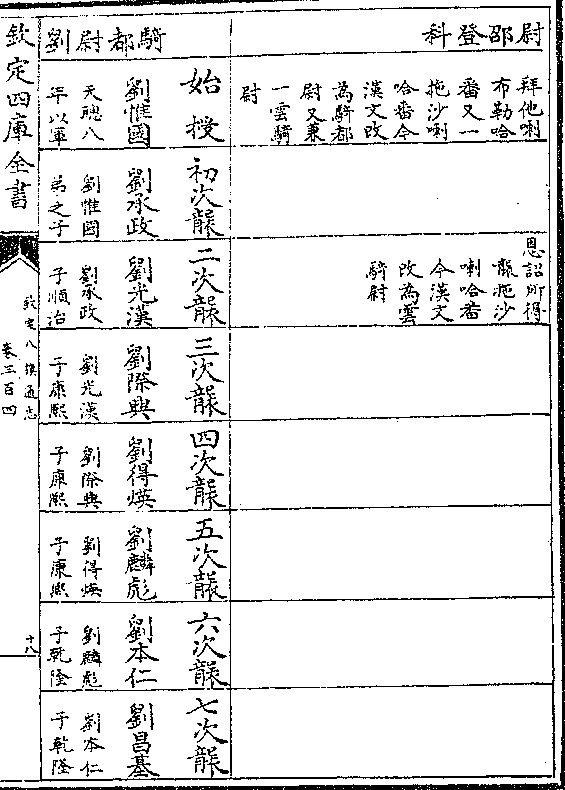 尉邵登科
拜他喇
布勒哈
番又一
拖沙喇
哈番今
漢文改
為騎都
尉又兼
一雲騎
尉
恩詔所得
襲拖沙
喇哈番
今漢文
改為雲
騎尉
騎都尉劉
始授
劉惟國
天聰八
年以軍
初次襲
劉承政
劉惟國
弟之子
二次襲
劉光漢
劉承政
子順治
三次襲
劉際興
劉光漢
子康熙
四次襲
劉得煐
劉際興
子康熙
五次襲
劉麟彪
劉得煐
子康熙
六次襲
劉本仁
劉麟彪
子乾隆
七次襲
劉昌基
劉本仁
子乾隆
欽定四庫全書
欽定八旗通志
卷三百四
十八